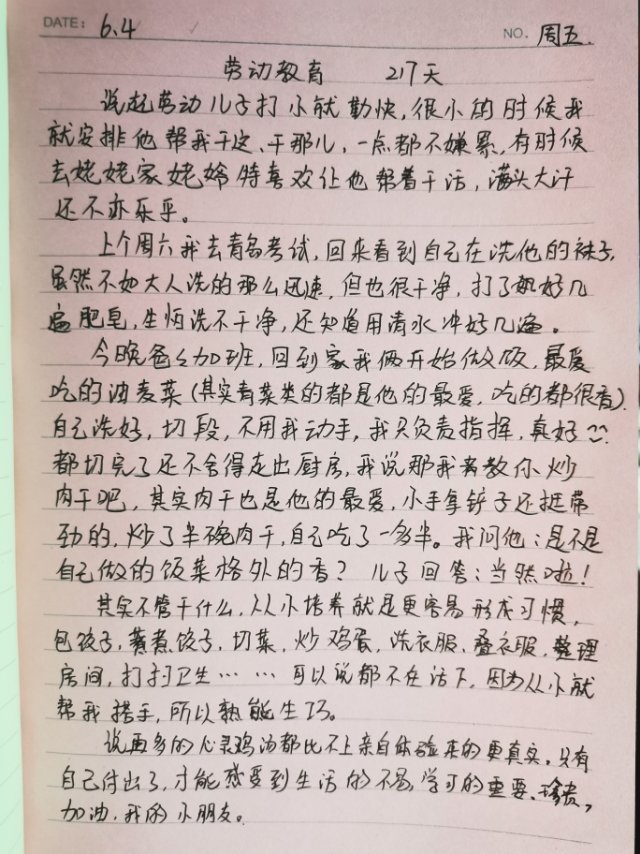 DATE: 6.4
NO. 周五.
劳动教育 217天
说起劳动儿子打小就勤快,很小的时候我
就安排他帮我干这、干那儿,一点都不嫌累,有时候
去姥姥家姥爷特喜欢让他帮着干活,满头大汗
还不亦乐乎。
上个周六我去青岛考试,回来看到自己在洗他的袜子,
虽然不如大人洗的那么迅速,但也很干净,打了好几
遍肥皂,生怕洗不干净,还知道用清水冲好几遍。
今晚爸爸加班,回到家我俩开始做饭,最爱
吃的油麦菜(其实青菜类的都是他的最爱,吃的都很香)
自己洗好,切段,不用我动手,我只负责指挥,真好
都切完了还不舍得走出厨房,我说那我来教你炒
肉干吧,其实肉干也是他的最爱,小手拿铲子还挺带
劲的,炒了半碗肉干,自己吃了一多半。我问他:是不是
自己做的饭菜格外的香?儿子回答:当然啦!
其实不管干什么,从小培养就是更容易形成习惯,
包饺子,煮饺子,切菜,炒鸡蛋,洗衣服,叠衣服,整理
房间,打扫卫生……可以说都不在话下,因为从小就
帮我搭手,所以熟能生巧。
说再多的心灵鸡汤都比不上亲自体验来的更真实。只有
自己付出了,才能感受到生活的不易,学习的重要、珍贵,
加油,我的小朋友。